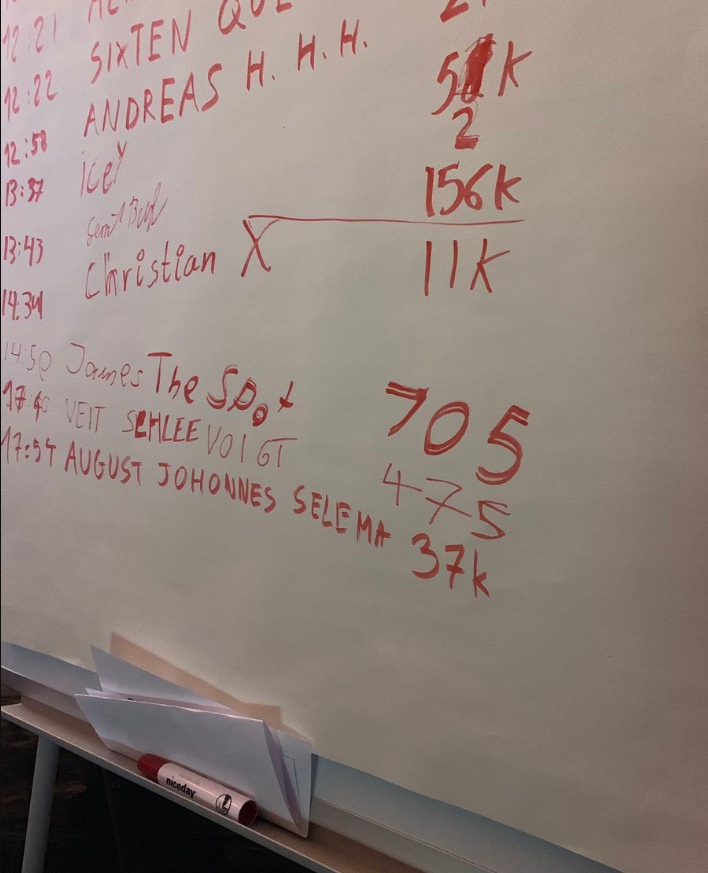 12:21 SIXTEN
12:22 ANDREAS H. H. H. 5 k
2
12:58 icey
13:37 156k
13:43 Christian X 11k
14:34
14:50 James The Spot 705
17:40 VEIT SCHLEE VOIGT 475
17:54 AUGUST JOHONNES SELEMA 37k
niceday